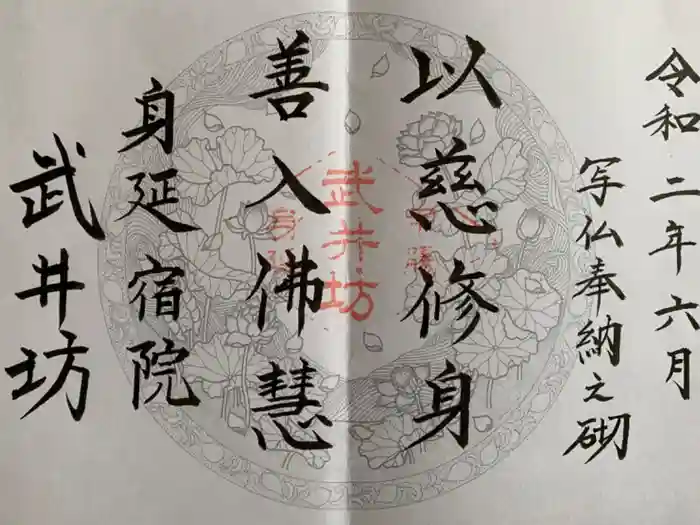 令和二年六月
写仏奉納之砌
以慈修身
善入佛慧
身延宿院
武井坊
武井坊
身延